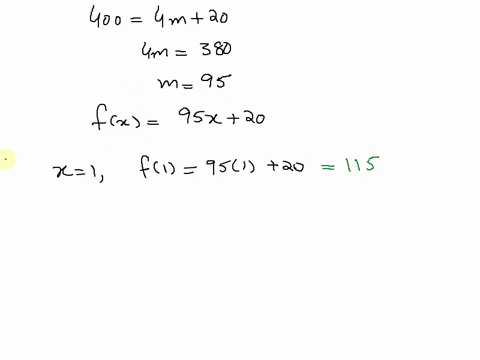 400 = 4m+20
4m = 380
m = 95
f(x) = 95x+20
x=1, f(1) = 95(1) +20 = 115